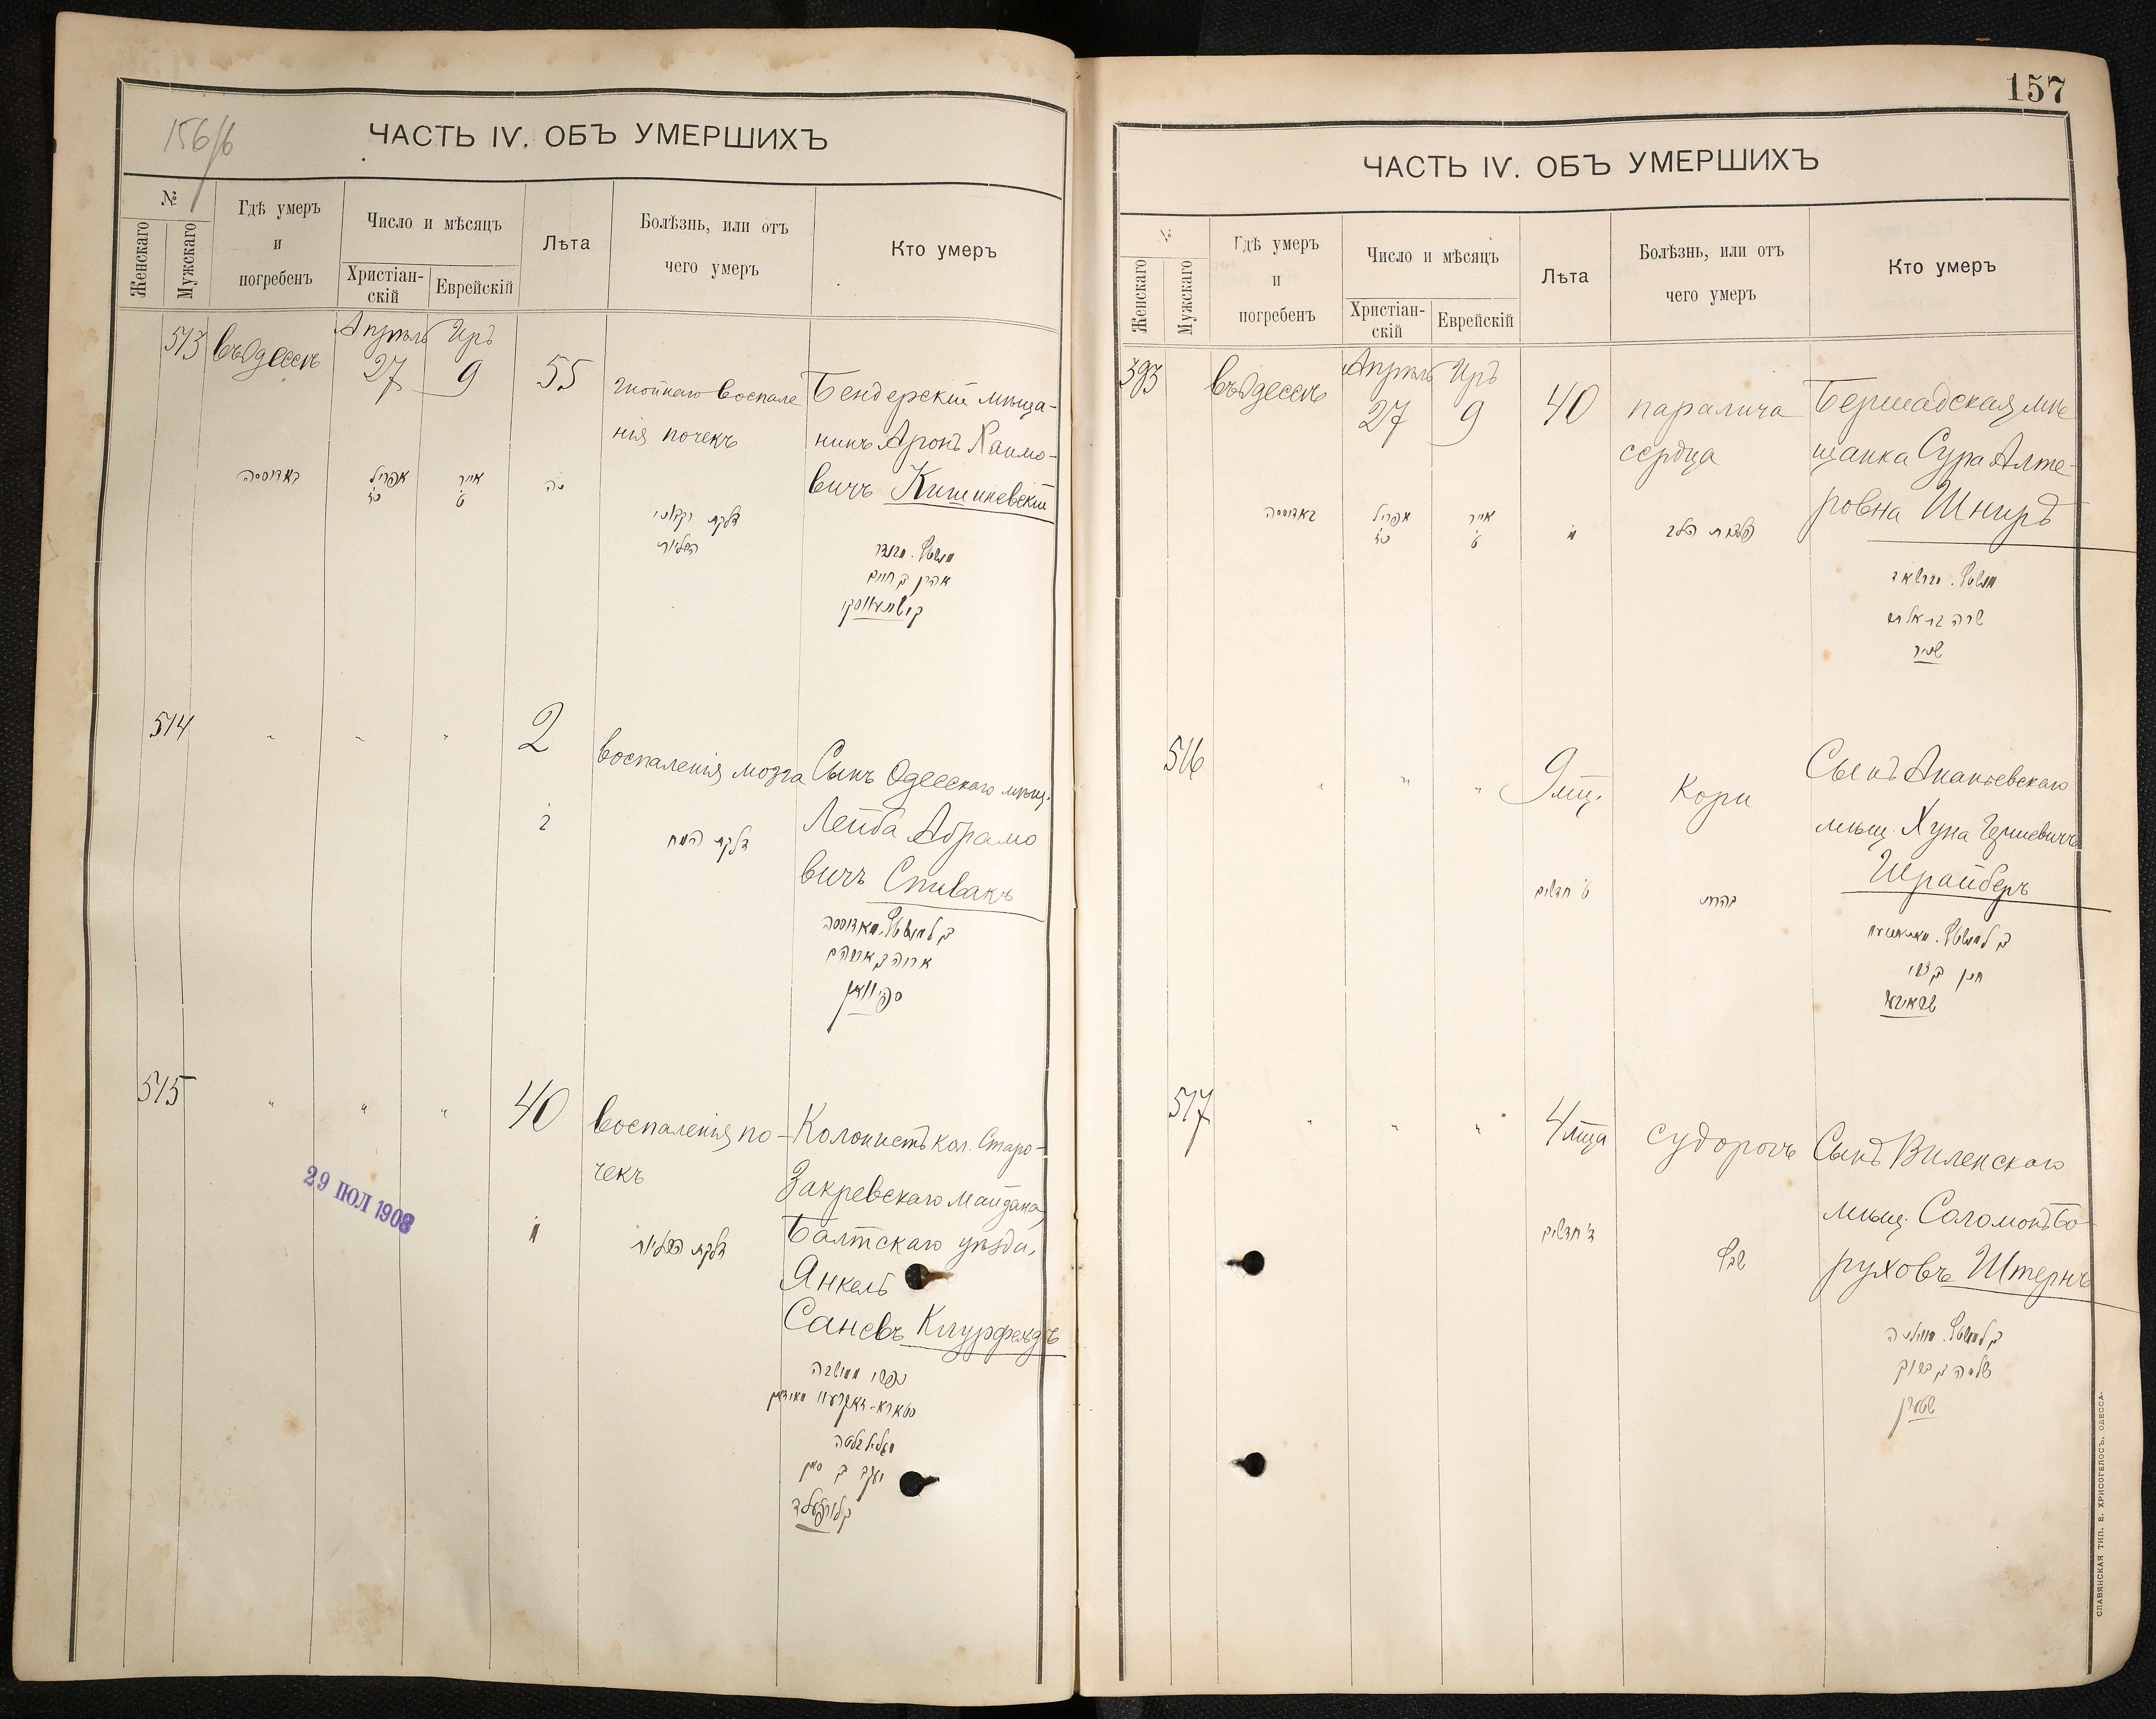 156/б
ЧАСТЬ IV. ОБЪ УМЕРШИХЪ
№
Женскаго
Мужскаго
Гдѣ умеръ
и
погребенъ
Число и мѣсяцъ
Христіан-
скій
Еврейскій
Лѣта
Болѣзнь, или отъ
чего умеръ
Кто умеръ
513
въ Одессѣ
Апрѣль
27
Иръ
9
55
гнойнаго воспале
нія почекъ
Бендерскій мѣща-
нинъ Аронъ Хаимо-
вичъ Кишиневскій
באדוססה
אפריל
כז
אייר
ט
נה
דלקת
הכליות
אהרן בן חיים
514
"
"
"
2
воспаленія мозга
Сынъ Одесскаго мѣщ.
Лейба Абрамо
вичъ Спивакъ
דלקת המח
515
"
"
"
40
воспаленія по-
чекъ
Колонистъ кол. Старо-
Закревскаго Майдана,
Балтскаго уѣзда,
Янкель
Саневъ Клурфельдъ
29 ІЮЛ 1908
דלקת הכליות
יעקב בן
157
ЧАСТЬ IV. ОБЪ УМЕРШИХЪ
№
Женскаго
Мужскаго
Гдѣ умеръ
и
погребенъ
Число и мѣсяцъ
Христіан-
скій
Еврейскій
Лѣта
Болѣзнь, или отъ
чего умеръ
Кто умеръ
393
въ Одессѣ
Апрѣль
27
Иръ
9
40
паралича
сердца
Бершадская мѣ
щанка Сура Алте-
ровна Шниръ
באדוססה
אפריל
כז
אייר
ט
מ
הלב
שניר
516
"
"
"
9 мц.
Кори
Сынъ Ананьевскаго
мѣщ. Хуна Гершевичъ
Шрайберъ
ט' חדשים
517
"
"
"
4 мца
судорогъ
Сынъ Виленскаго
мѣщ. Соломонъ Бо-
руховъ Штернъ
ד' חדשים
שבץ
שלמה בן ברוך
שטערן
СЛАВЯНСКАЯ ТИП. Е. ХРИСОГЕЛОСЪ, ОДЕССА.